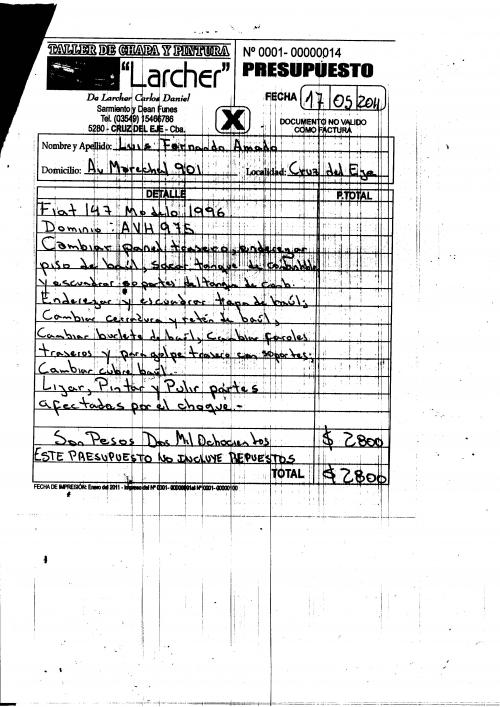 TALLER DE CHAPA Y PINTURA
"Larcher"
De Larcher Carlos Daniel
Sarmiento y Dean Funes
Tel. (03549) 15466786
5280 - CRUZ DEL EJE - Cba.
X
Nº 0001- 00000014
PRESUPUESTO
FECHA 17 05 2011
DOCUMENTO NO VALIDO
COMO FACTURA
Nombre y Apellido: Luis Fernando Amado
Domicilio: Av Marechal 901 Localidad: Cruz del Eje
DETALLE P.TOTAL
Fiat 147 Modelo 1996
Dominio: AVH 975
Cambiar panel trasero, enderezar
piso de baúl, sacar tanque de combustible
y escuadrar soportes del tanque de comb.
Enderezar y escuadrar tapa de baúl;
Cambiar cerradura y retén de baúl,
Cambiar burlete de baúl, Cambiar faroles
traseros y paragolpe trasero con soportes;
Cambiar cubre baul.-
Lijar, Pintar y Pulir partes
afectadas por el choque.-
Son Pesos Dos Mil Ochocientos $ 2800
ESTE PRESUPUESTO NO INCLUYE REPUESTOS
TOTAL $ 2800
FECHA DE IMPRESIÓN: Enero del 2011 - Impreso del Nº 0001- 00000001 al Nº 0001- 00000100